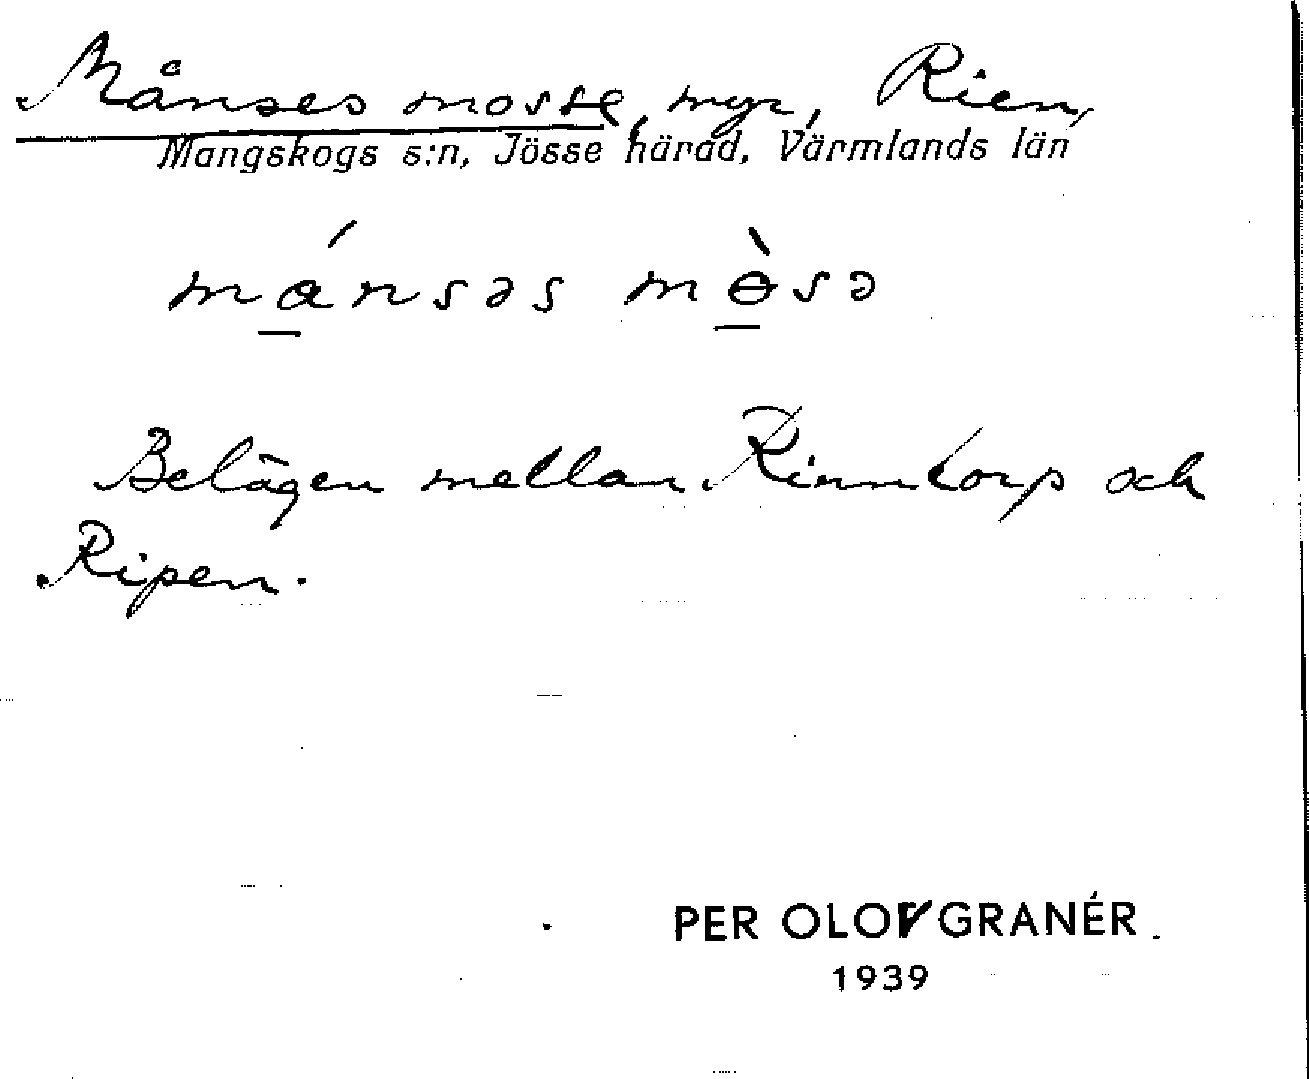 Månses mosse, myr, Rien,
Mangskogs s:n, Jösse härad, Värmlands län
mánsəs mɵ̀sə
Belägen mellan Rinntorp och
Ripen.
PER OLOV GRANÉR
1939